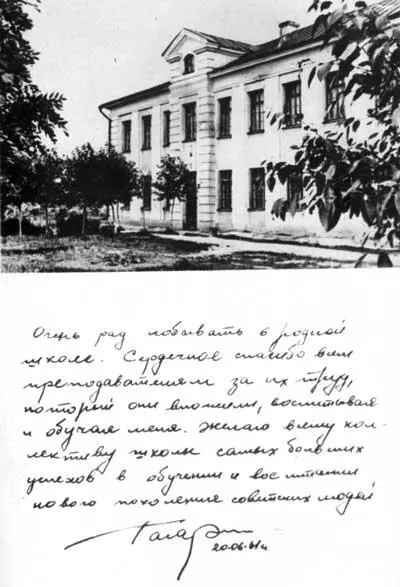 Очень рад побывать в родной
школе. Сердечное спасибо всем
преподавателям за их труд,
который они вложили, воспитывая
и обучая меня. Желаю всему кол-
лективу школы самых больших
успехов в обучении и воспитании
нового поколения советских людей
Гагарин